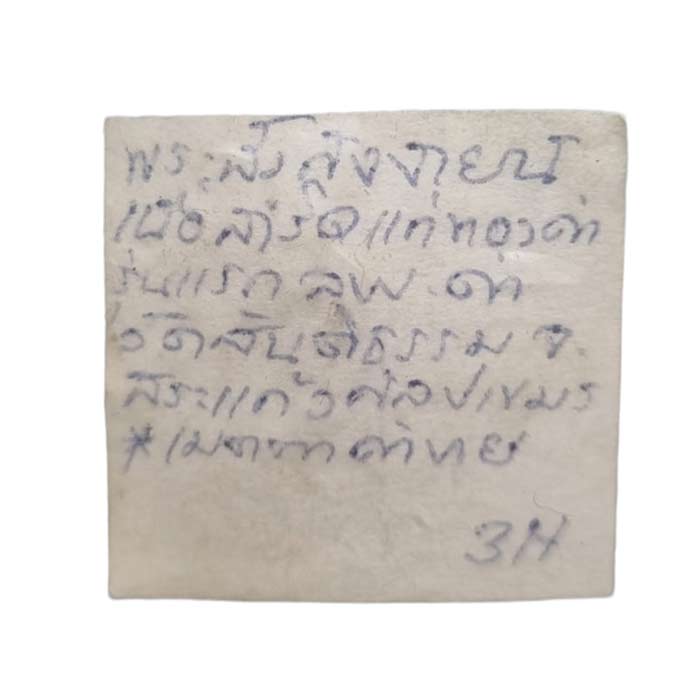 พระสังกัจจายน์
เนื้อสำริดแก่ทองคำ
รุ่นแรก ลพ. ดำ
วัดสันติธรรม จ.
สระแก้วศิลปเขมร
*เมตตาค้าขาย
3H